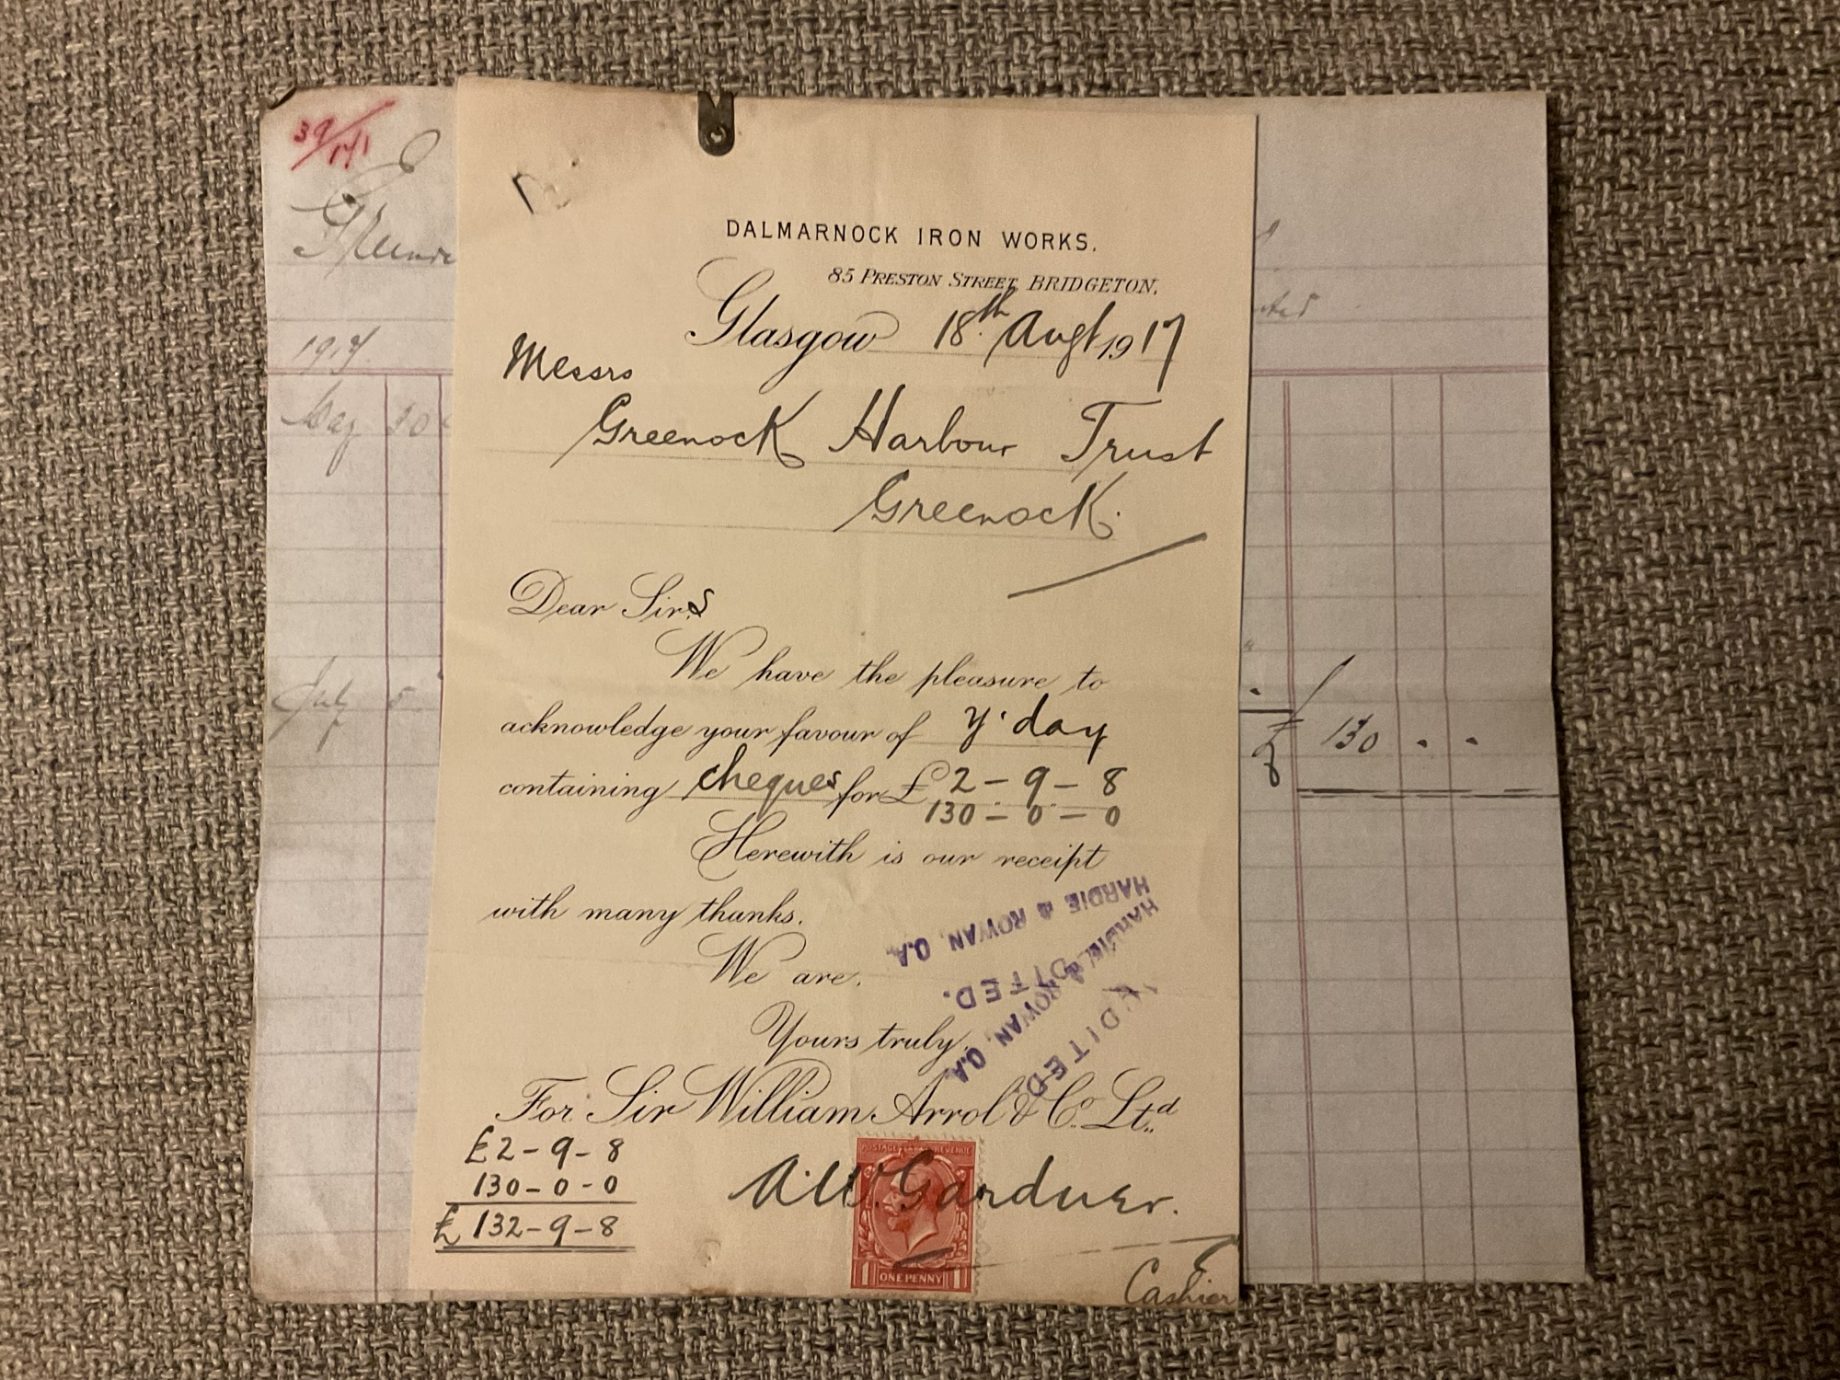 39/171
DALMARNOCK IRON WORKS.
85 PRESTON STREET, BRIDGETON.
Glasgow 18th Augt 1917
Messrs
Greenock Harbour Trust
Greenock.
Dear Sirs
We have the pleasure to
acknowledge your favour of y'day
containing cheques for £2-9-8
130-0-0
Herewith is our receipt
with many thanks.
We are,
Yours truly,
HARDIE & ROWAN, C.A.
HARDIE & ROWAN, C.A.
AUDITED
For Sir William Arrol & Co. Ltd.
£2-9-8
130-0-0
£132-9-8
A.W. Gardner.
Cashier
POSTAGE REVENUE
1 ONE PENNY 1
1917
May 30
July 5
£ 130 . .